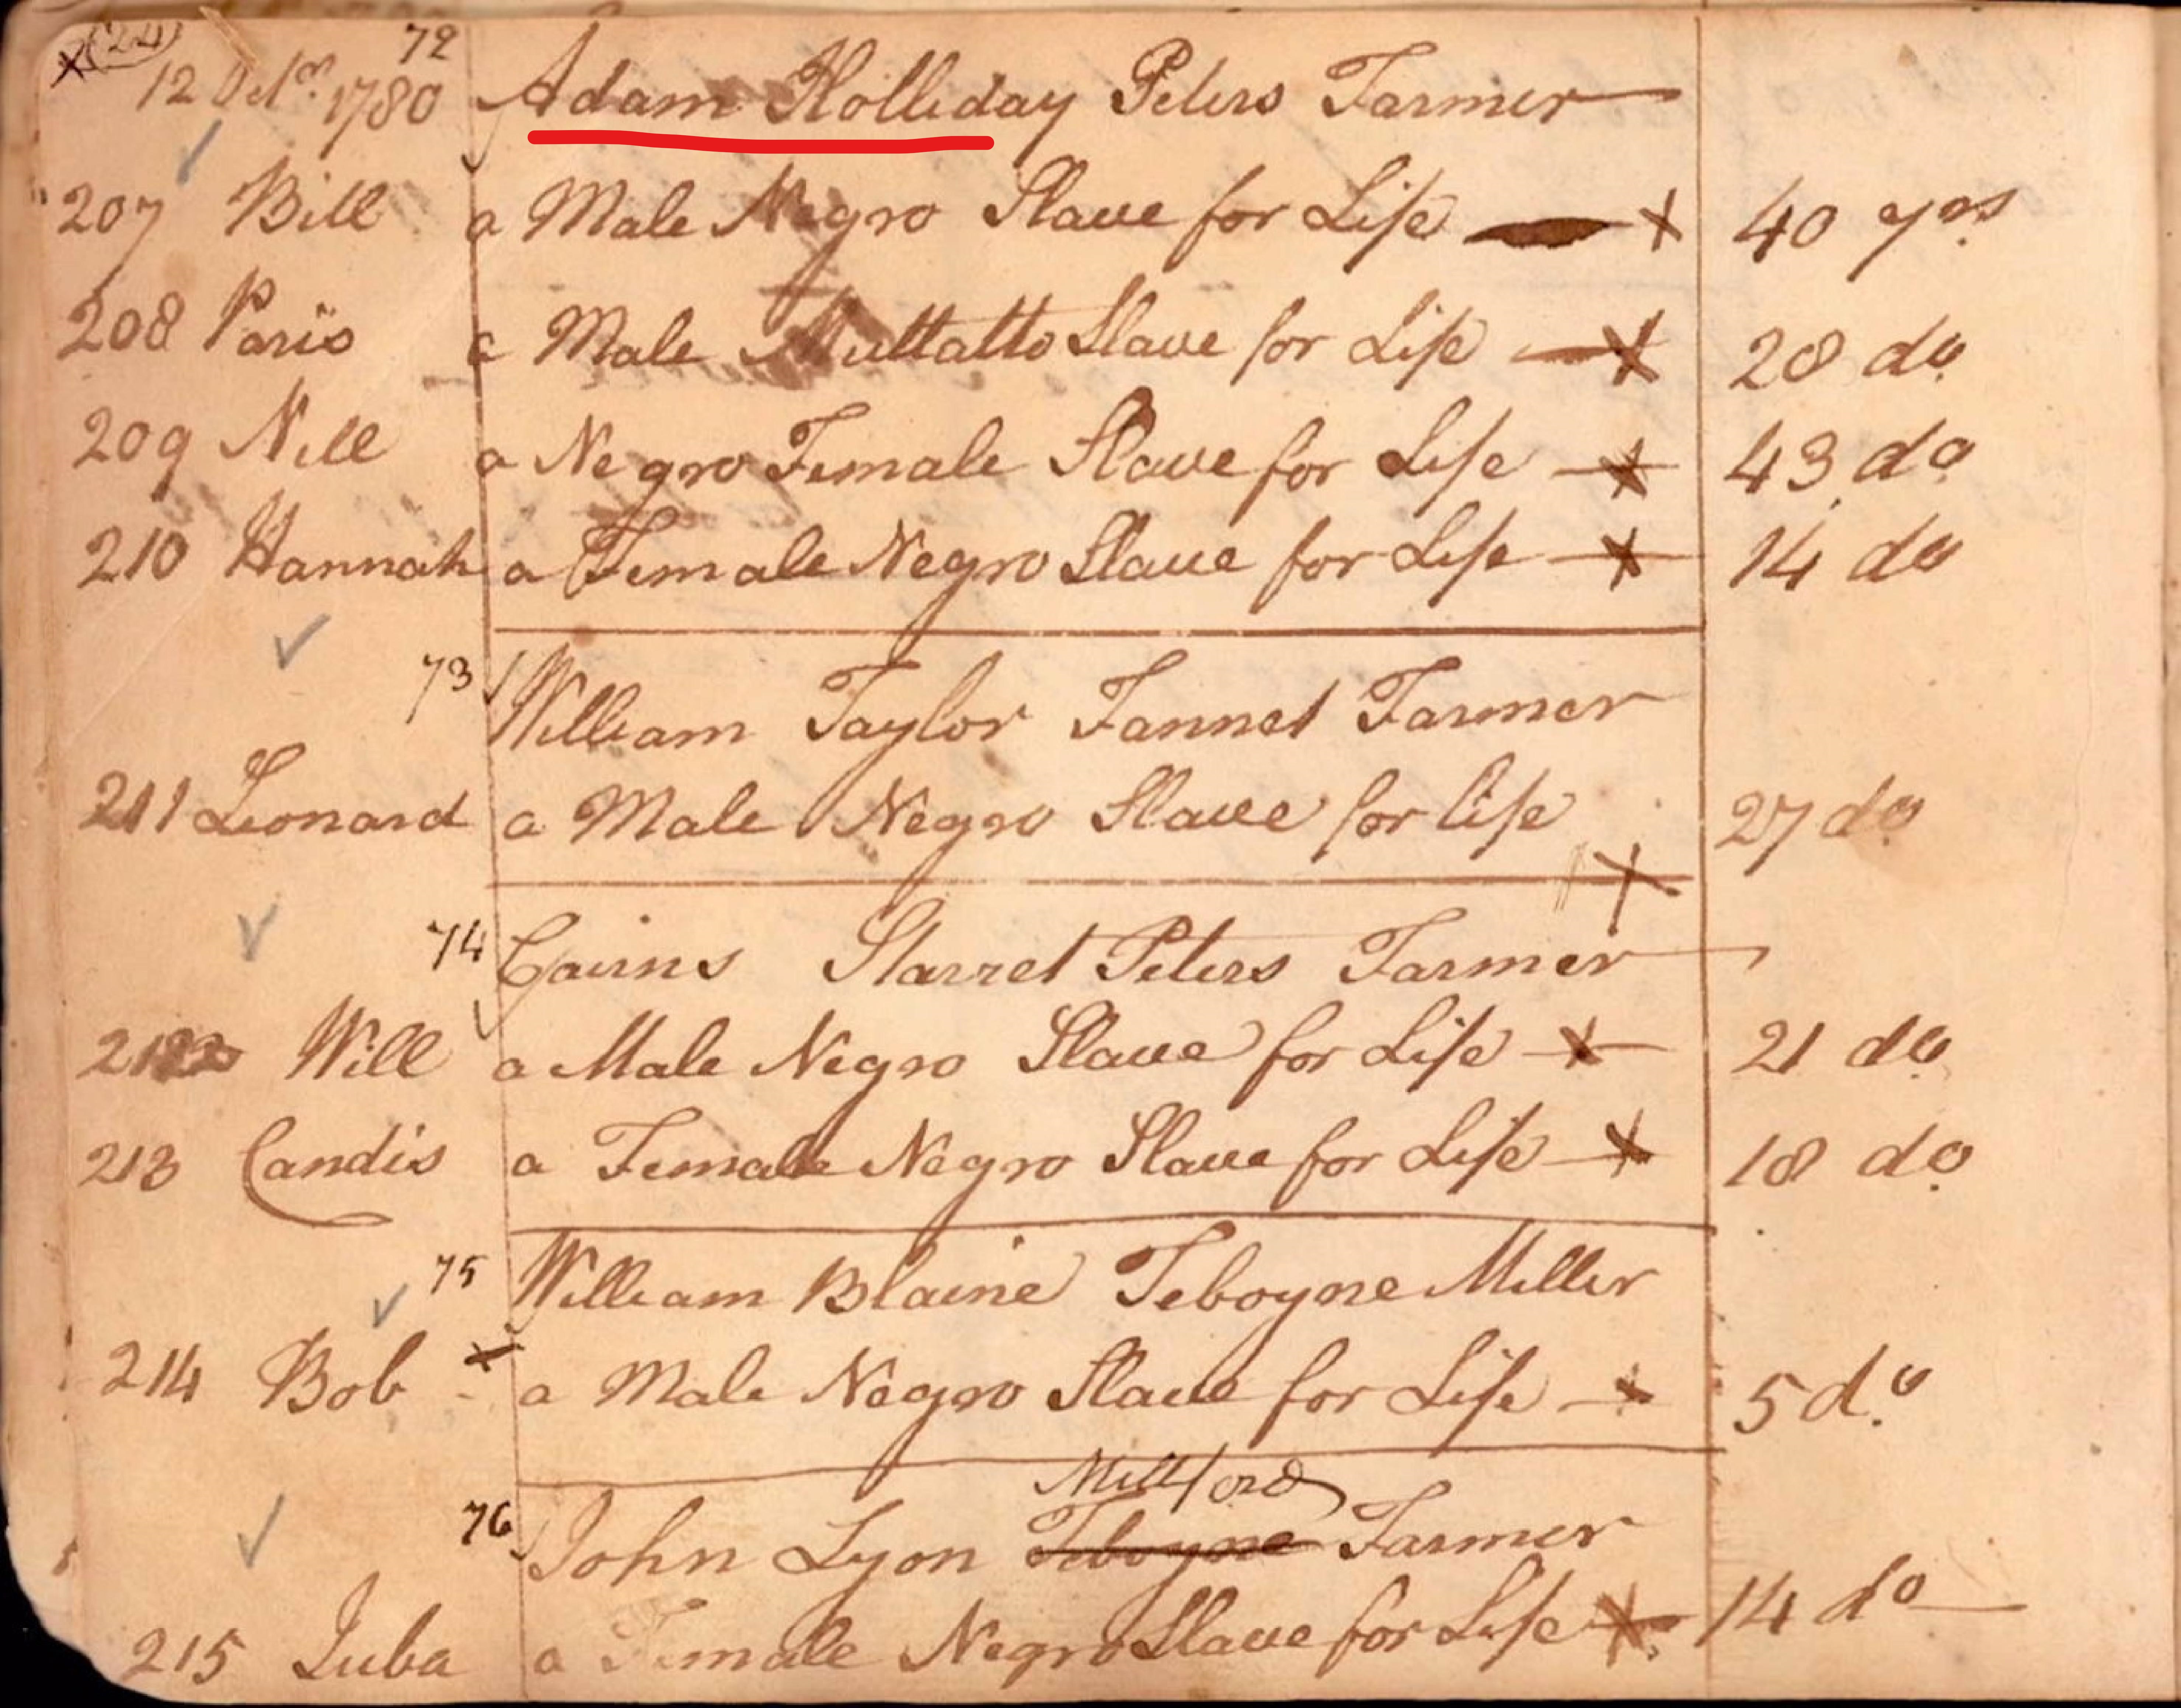 (24)
72
12 Octr. 1780 Adam Holliday Peters Farmer
207 Bill a Male Negro Slave for Life 40 yrs
208 Paris a Male Mullatto Slave for Life 28 do
209 Nell a Negro Female Slave for Life 43 do
210 Hannah a Female Negro Slave for Life 14 do
73 William Taylor Fannet Farmer
211 Leonard a Male Negro Slave for life 27 do
74 Cairns Starret Peters Farmer
212 Will a Male Negro Slave for Life 21 do
213 Candis a Female Negro Slave for Life 18 do
75 William Blaine Teboyne Miller
214 Bob a Male Negro Slave for Life 5 do
Millford
76 John Lyon Teboyne Farmer
215 Juba a Female Negro Slave for Life 14 do